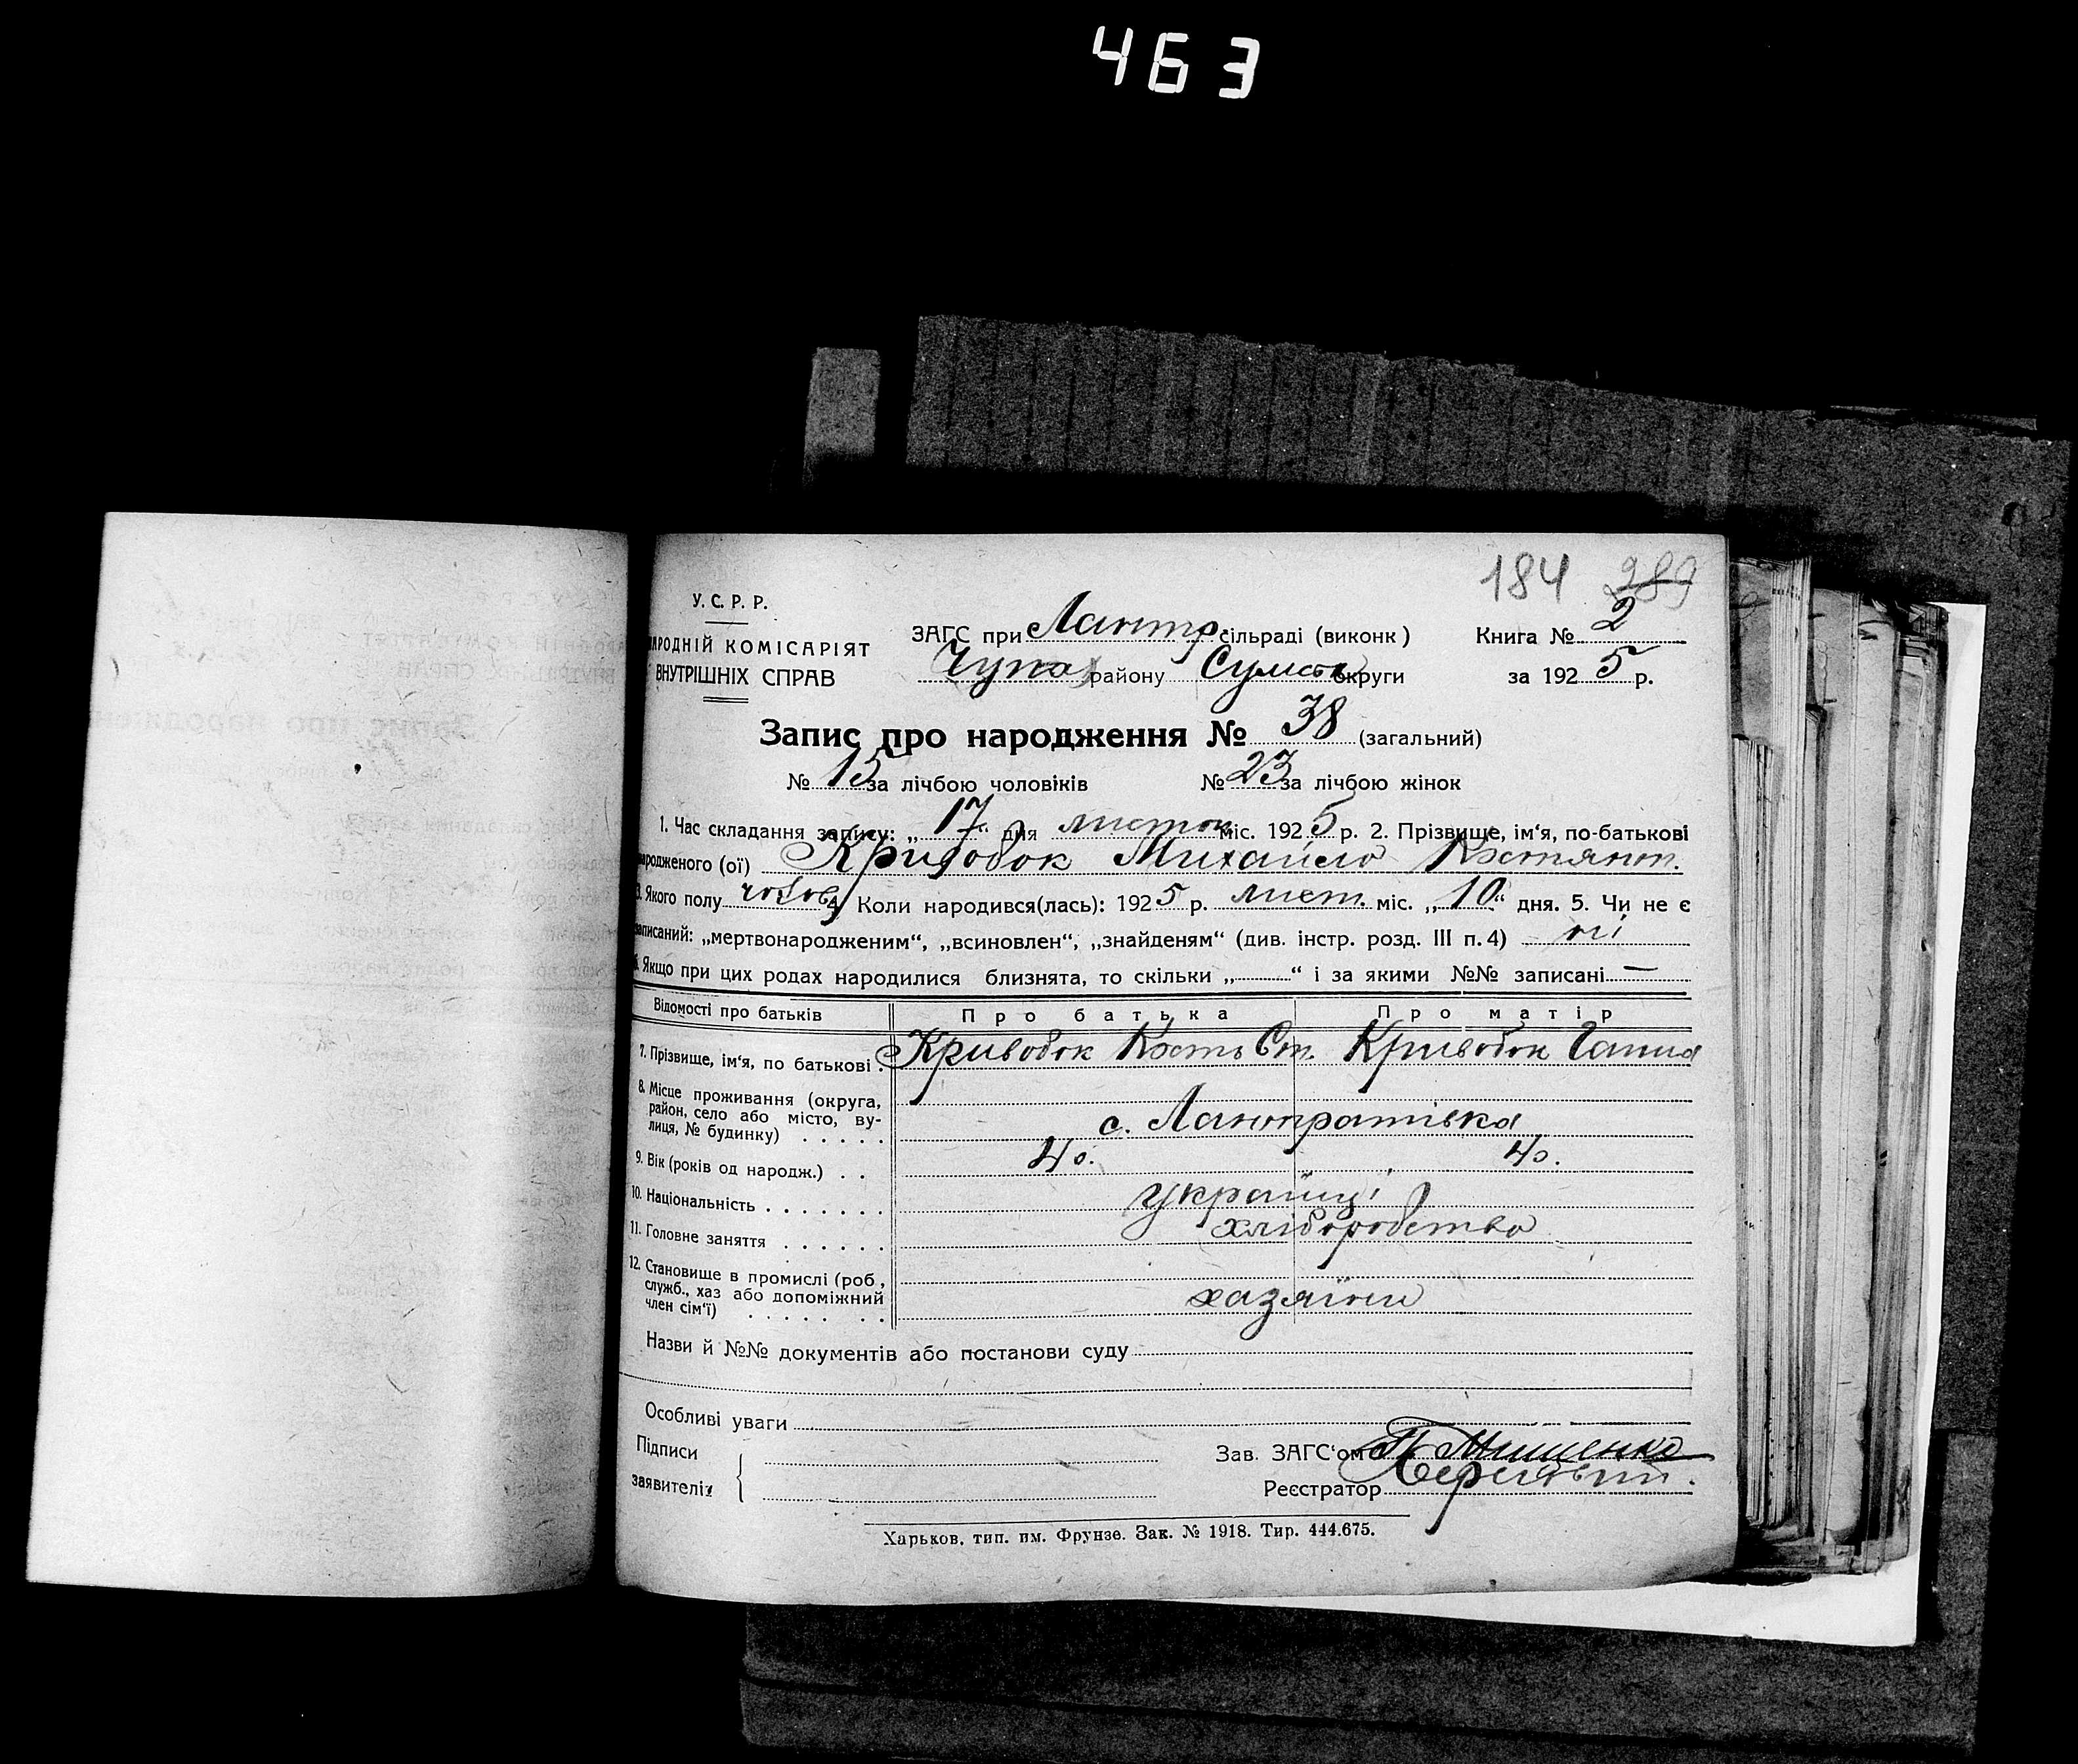 463
184 289
У. С. Р. Р.
НАРОДНІЙ КОМІСАРІЯТ
ВНУТРІШНІХ СПРАВ
ЗАГС при Лантр сільраді (виконк) Книга № 2
Чупах району Сумськ округи за 1925 р.
Запис про народження № 38 (загальний)
№ 15 за лічбою чоловіків № 23 за лічбою жінок
1. Час складання запису: „17“ дня листоп міс. 1925 р. 2. Прізвище, ім‘я, по-батькові
народженого (ої) Кривобок Михайло Костянт.
3. Якого полу чолов 4. Коли народився(лась): 1925 р. лист. міс. „10“ дня. 5. Чи не є
записаний: „мертвонародженим“, „всиновлен“, „знайденям“ (див. інстр. розд. III п. 4) ні
6. Якщо при цих родах народилися близнята, то скільки „ “ і за якими №№ записані —
Відомості про батьків Про батька Про матір
7. Прізвище, ім‘я, по батькові. Кривобок Кость Ст. Кривобок Ганна
8. Місце проживання (округа,
район, село або місто, ву-
лиця, № будинку) . . . . . с. Лантратівка
9. Вік (років од народж.) . . 40. 40.
10. Національність . . . . . . . українці
11. Головне заняття . . . . . . хліборобство
12. Становище в промислі (роб.,
служб., хаз або допоміжний
член сім‘ї) . . . . . . . хазяїни
Назви й №№ документів або постанови суду
Особливі уваги
Підписи
заявителів
Зав. ЗАГС‘ом Мищенко
Реєстратор
Харьков, тип. им. Фрунзе. Зак. № 1918. Тир. 444.675.